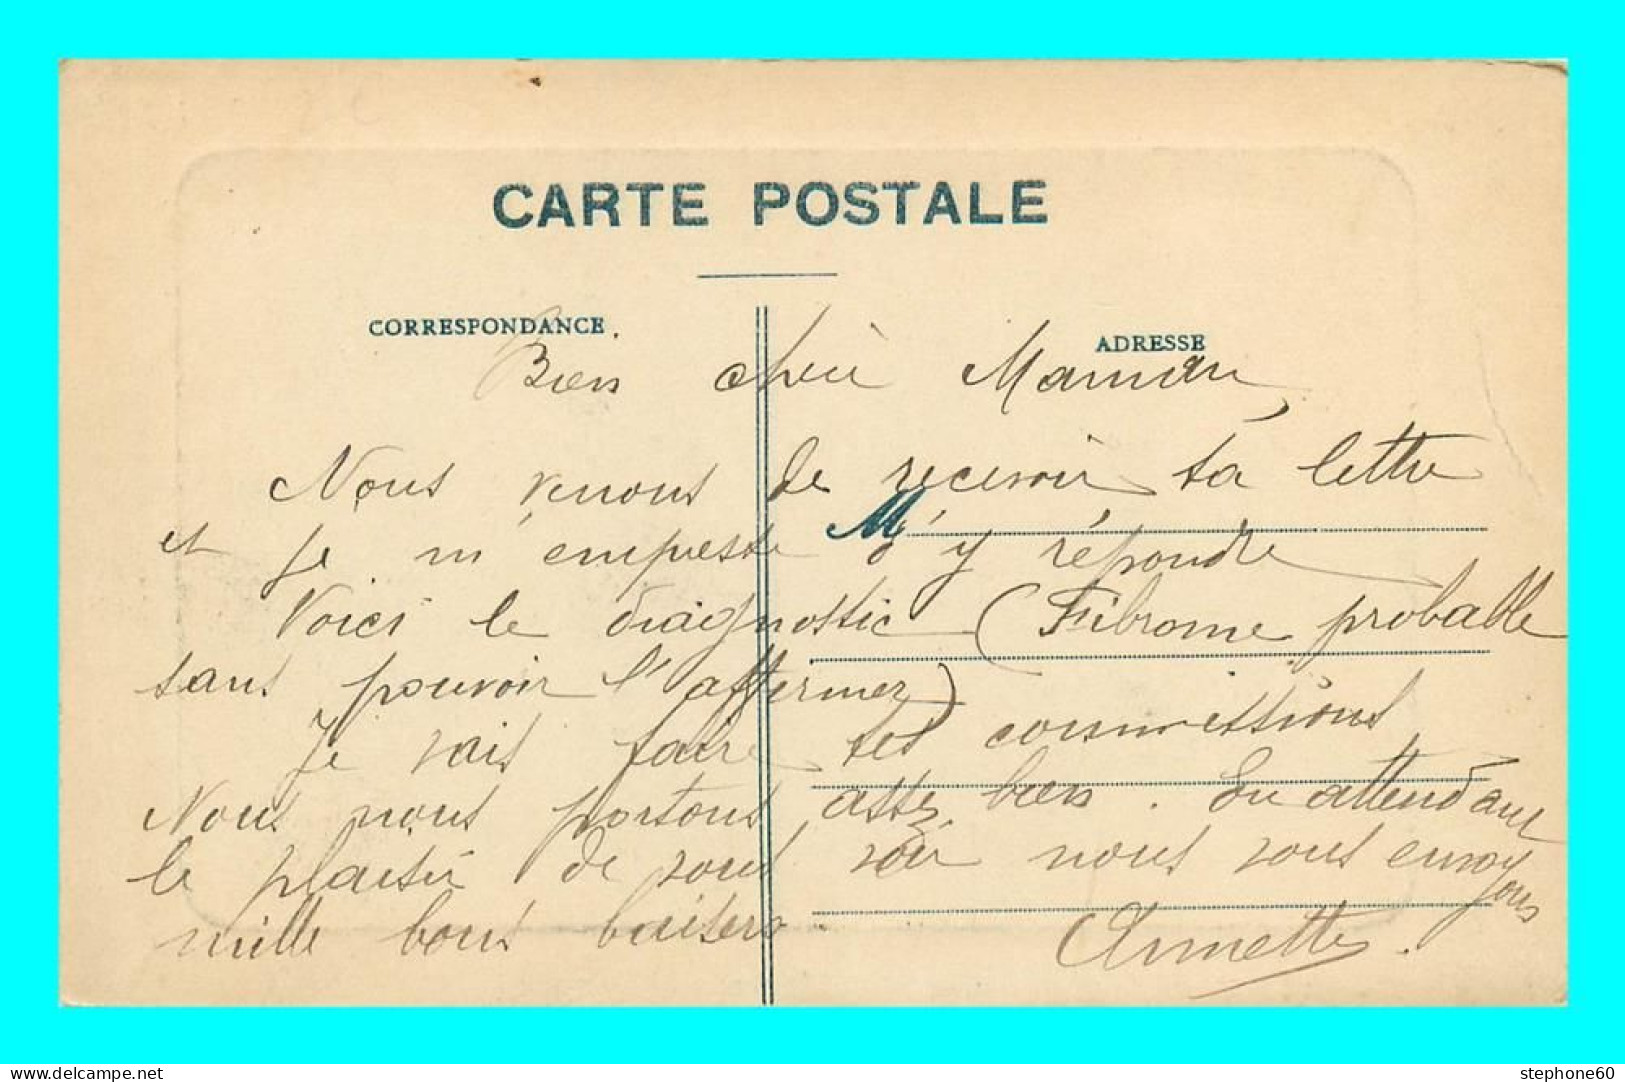 CARTE POSTALE
CORRESPONDANCE
ADRESSE
Bien chère Maman,
Nous venons de recevoir ta lettre
M
et je m'empresse d'y répondre
Voici le diagnostic (Fibrome probable
sans pouvoir l'affermer)
Je vais faire tes commissions
Nous nous portons assez bien. En attendant
le plaisir de vous voir nous vous envoyons
mille bons baisers.
Annette.
delcampe.net
stephone60